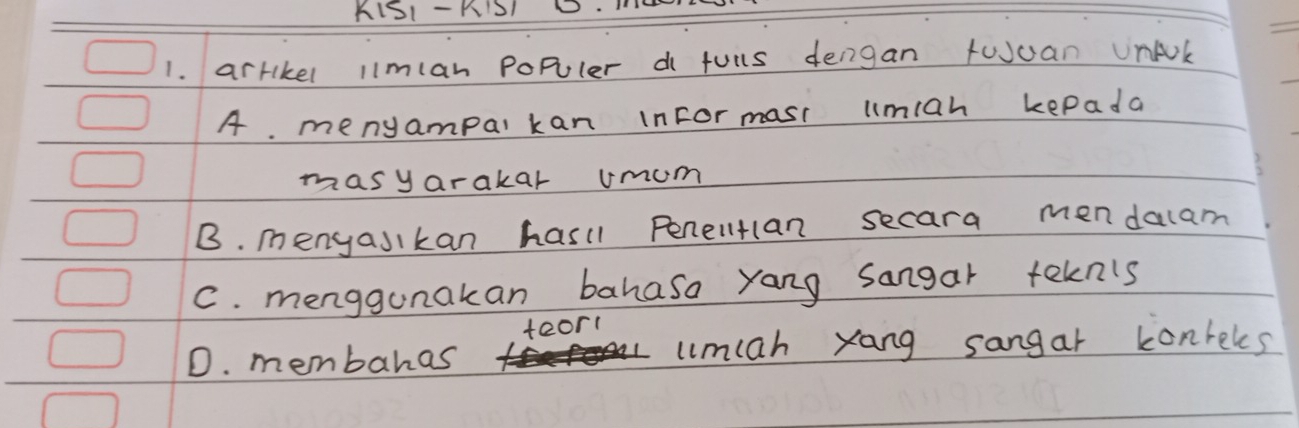 KISI - KISI B.
1. artikel ilmiah PoPuler di tulis dengan tujuan untuk
A. menyampai kan inFormasi ilmiah kepada
masyarakat umum
B. menyajikan hasil Penelitian secara mendalam.
C. menggunakan bahasa yang sangat teknis
teori
D. membahas ilmiah yang sangat konteks